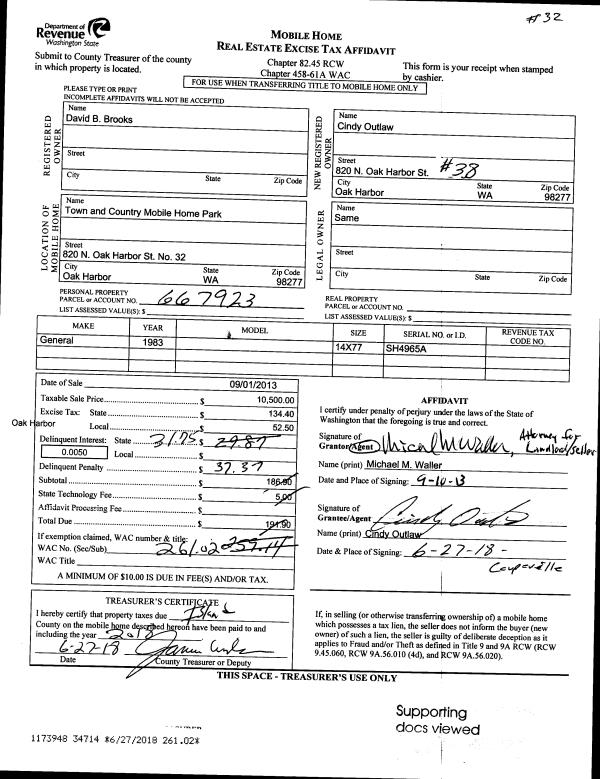 #32
Department of
Revenue
Washington State
MOBILE HOME
REAL ESTATE EXCISE TAX AFFIDAVIT
Submit to County Treasurer of the county
in which property is located.
Chapter 82.45 RCW
Chapter 458-61A WAC
This form is your receipt when stamped
by cashier.
FOR USE WHEN TRANSFERRING TITLE TO MOBILE HOME ONLY
PLEASE TYPE OR PRINT
INCOMPLETE AFFIDAVITS WILL NOT BE ACCEPTED
REGISTERED
OWNER
Name
David B. Brooks
Street
City State Zip Code
NEW REGISTERED
OWNER
Name
Cindy Outlaw
Street
820 N. Oak Harbor St. #38
City State Zip Code
Oak Harbor WA 98277
LOCATION OF
MOBILE HOME
Name
Town and Country Mobile Home Park
Street
820 N. Oak Harbor St. No. 32
City State Zip Code
Oak Harbor WA 98277
LEGAL OWNER
Name
Same
Street
City State Zip Code
PERSONAL PROPERTY
PARCEL or ACCOUNT NO. 667923
LIST ASSESSED VALUE(S): $
REAL PROPERTY
PARCEL or ACCOUNT NO.
LIST ASSESSED VALUE(S): $
MAKE YEAR MODEL SIZE SERIAL NO. or I.D. REVENUE TAX CODE NO.
General 1983 14X77 SH4965A
Date of Sale 09/01/2013
Taxable Sale Price $ 10,500.00
Excise Tax: State $ 134.40
Oak Harbor Local $ 52.50
Delinquent Interest: State 31.75 $ 29.87
0.0050 Local $
Delinquent Penalty $ 37.37
Subtotal $ 186.90
State Technology Fee $ 5.00
Affidavit Processing Fee $
Total Due $ 191.90
If exemption claimed, WAC number & title:
WAC No. (Sec/Sub) 261.02 259.14
WAC Title
A MINIMUM OF $10.00 IS DUE IN FEE(S) AND/OR TAX.
AFFIDAVIT
I certify under penalty of perjury under the laws of the State of
Washington that the foregoing is true and correct.
Signature of
Grantor/Agent Micael M Waller, Attorney for
Landlord/Seller
Name (print) Michael M. Waller
Date and Place of Signing: 9-10-13
Signature of
Grantee/Agent Cindy Outlaw
Name (print) Cindy Outlaw
Date & Place of Signing: 6-27-18 -
Coupeville
TREASURER'S CERTIFICATE
I hereby certify that property taxes due Island
County on the mobile home described hereon have been paid to and
including the year 2018
6-27-18
Date County Treasurer or Deputy
If, in selling (or otherwise transferring ownership of) a mobile home
which possesses a tax lien, the seller does not inform the buyer (new
owner) of such a lien, the seller is guilty of deliberate deception as it
applies to Fraud and/or Theft as defined in Title 9 and 9A RCW (RCW
9.45.060, RCW 9A.56.010 (4d), and RCW 9A.56.020).
THIS SPACE - TREASURER'S USE ONLY
Supporting
docs viewed
1173948 34714 *6/27/2018 261.02*